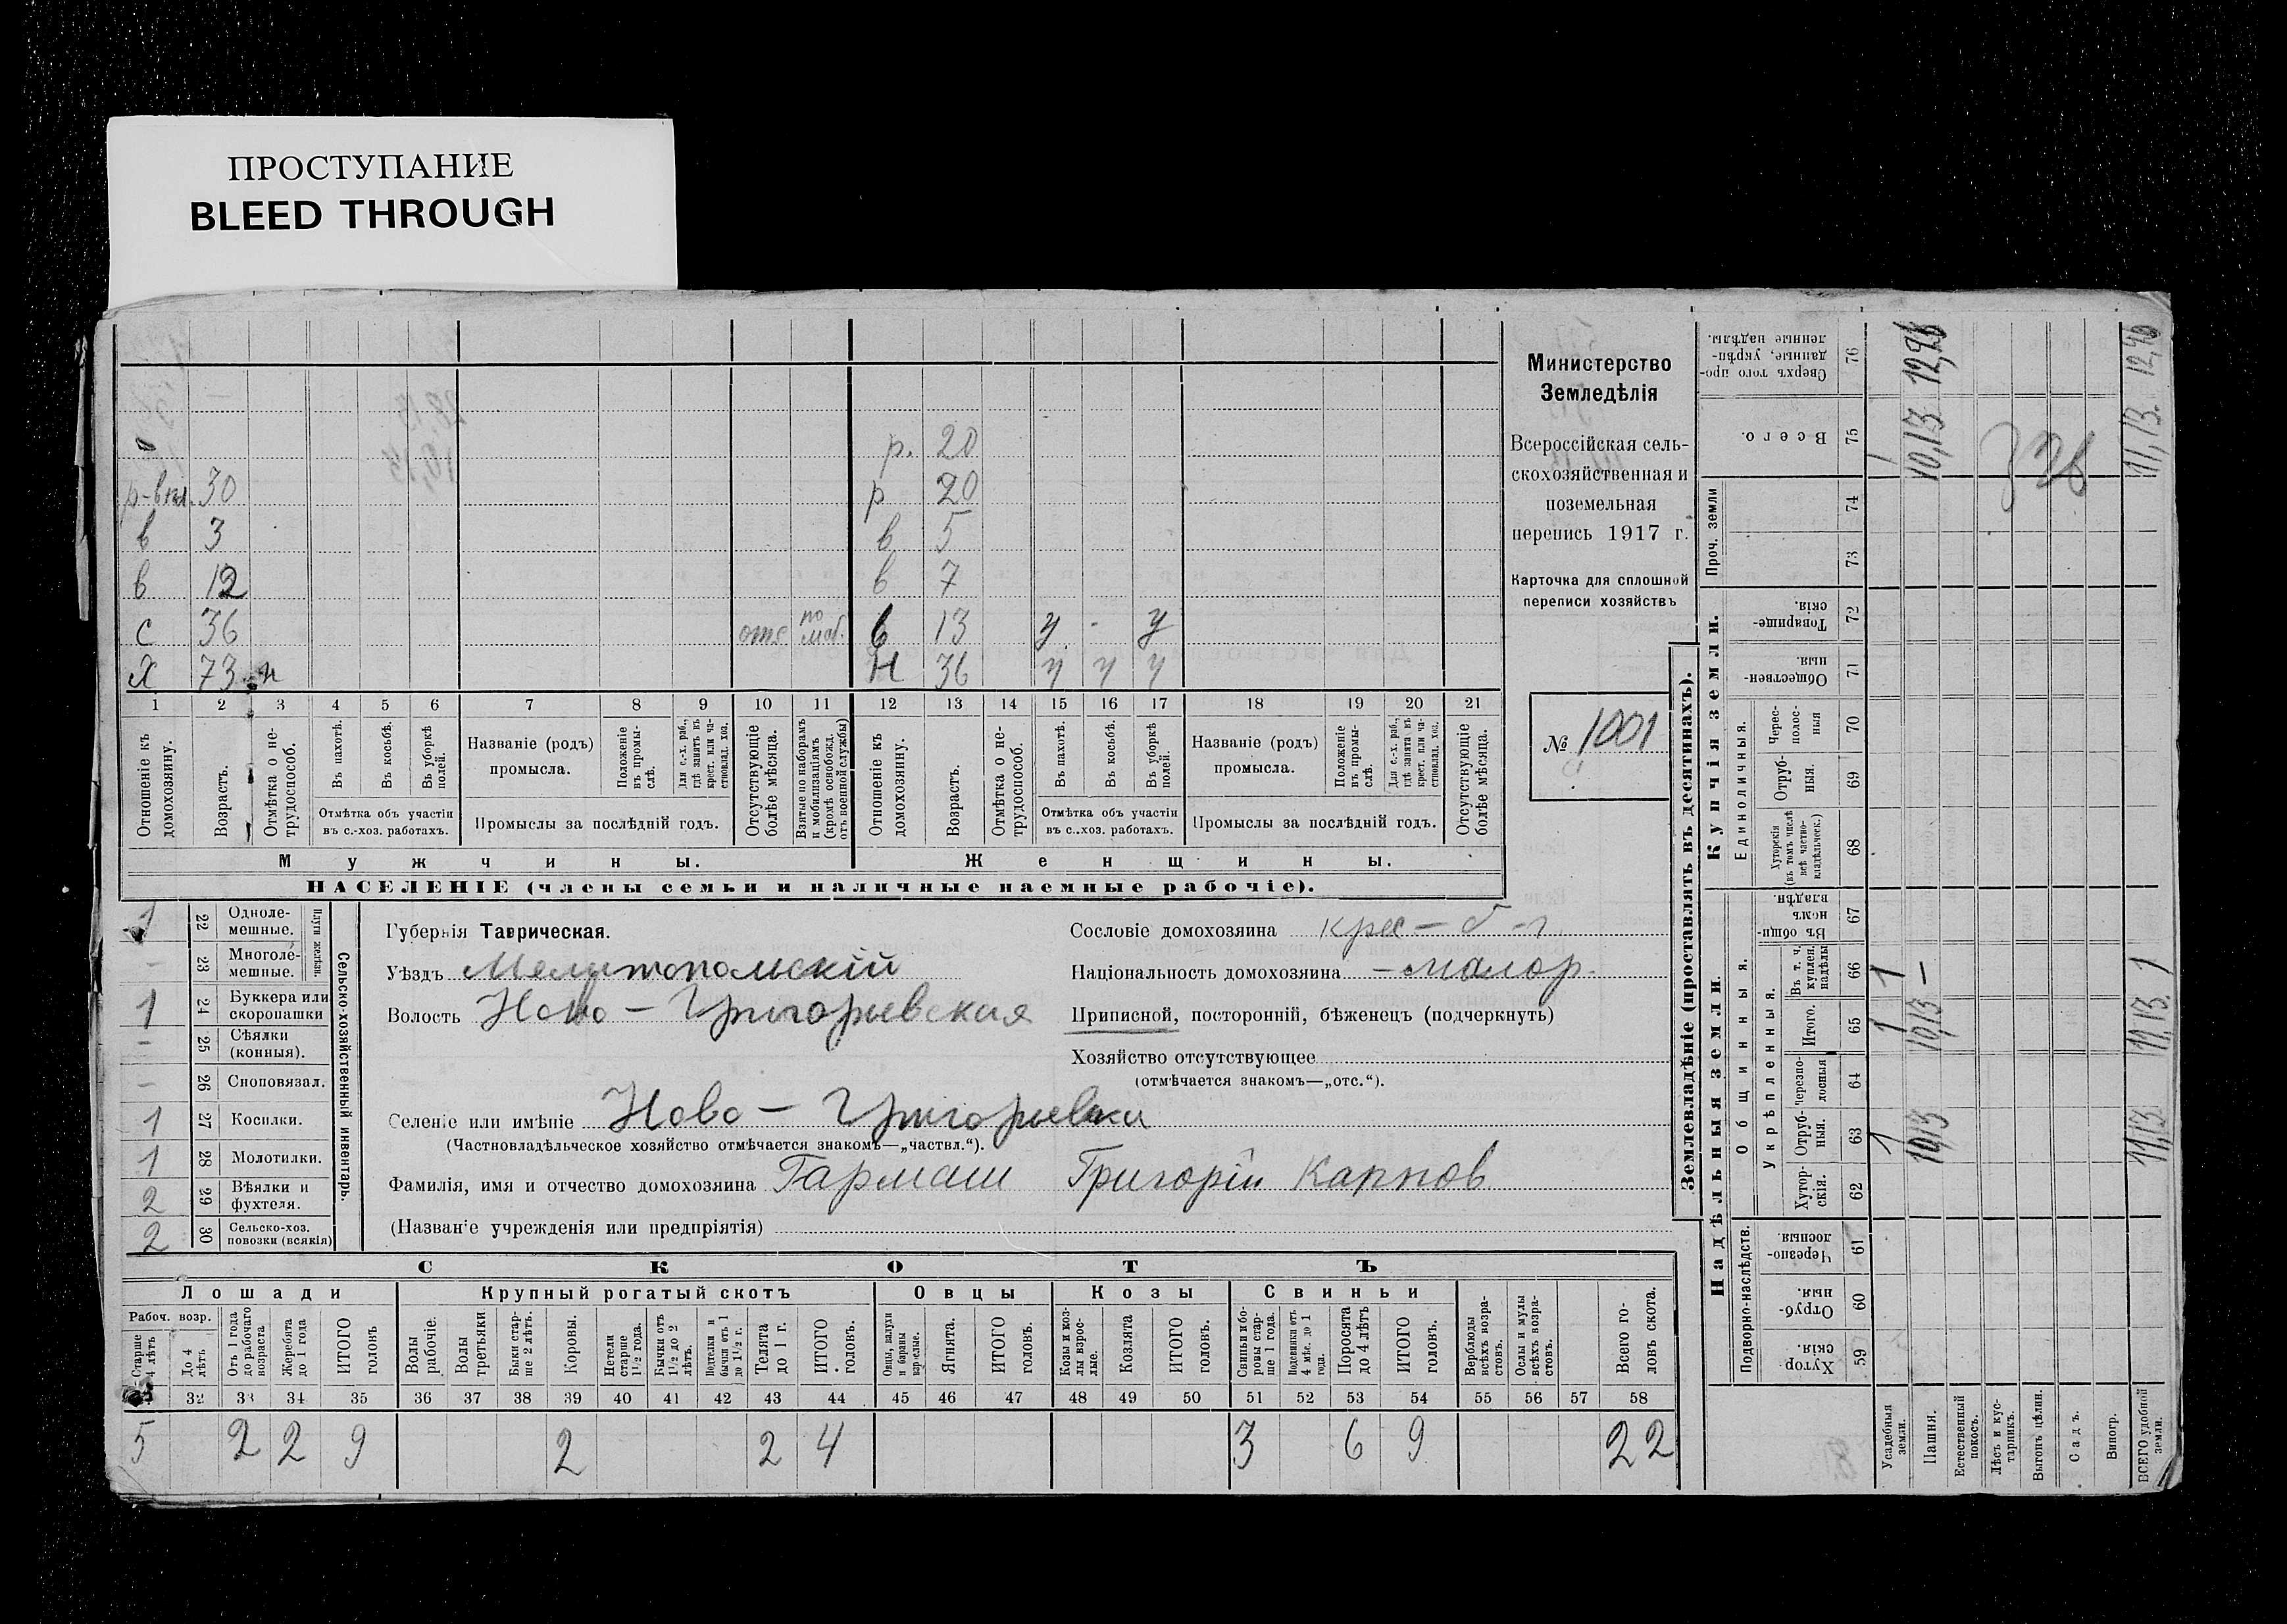 ПРОСТУПАНИЕ
BLEED THROUGH
р. 20
р-вкл. 30 р 20
в 3 в 5
в 12 в 7
с 36 отс по моб. в 13 у - у
Х 73 н Н 36 у у у
1 2 3 4 5 6 7 8 9 10 11 12 13 14 15 16 17 18 19 20 21
Отношеніе къ домохозяину.
Возрастъ.
Отмѣтка о нетрудоспособ.
Въ пахотѣ.
Въ косьбѣ.
Въ уборкѣ полей.
Отмѣтка объ участіи
въ с.-хоз. работахъ.
Названіе (родъ)
промысла.
Положеніе въ промыслѣ.
Для с.-х. раб., гдѣ занятъ въ крест. или частновлад. хоз.
Промыслы за послѣдній годъ.
Отсутствующіе болѣе мѣсяца.
Взятые по наборамъ и мобилизаціямъ (кромѣ освобожд. отъ военной службы)
Отношеніе къ домохозяину.
Возрастъ.
Отмѣтка о нетрудоспособ.
Въ пахотѣ.
Въ косьбѣ.
Въ уборкѣ полей.
Отмѣтка объ участіи
въ с..хоз. работахъ.
Названіе (родъ)
промысла.
Положеніе въ промыслѣ.
Для с.-х. раб., гдѣ занята въ крест. или частновлад. хоз.
Промыслы за послѣдній годъ.
Отсутствующіе болѣе мѣсяца.
Мужчины. Женщины.
НАСЕЛЕНІЕ (члены семьи и наличные наемные рабочіе).
Министерство
Земледѣлія
Всероссійская сель-
скохозяйственная и
поземельная
перепись 1917 г.
Карточка для сплошной
переписи хозяйствъ
№ 1001
1 22 Одноле-мешные.
- 23 Многоле-мешные.
Плуги желѣзн.
1 24 Буккера или скоропашки
- 25 Сѣялки (конныя).
- 26 Сноповязал.
1 27 Косилки.
1 28 Молотилки.
2 29 Вѣялки и фухтеля.
2 30 Сельско-хоз. повозки (всякія)
Сельско-хозяйственный инвентарь.
Губернія Таврическая.
Уѣздъ Мелитопольскій
Волость Ново-Григорьевская
Сословіе домохозяина крес-
Національность домохозяина - малор.
Приписной, посторонній, бѣженецъ (подчеркнуть)
Хозяйство отсутствующее
(отмѣчается знакомъ—„отс.“).
Селеніе или имѣніе Ново-Григорьевка
(Частновладѣльческое хозяйство отмѣчается знакомъ—„частвл.“).
Фамилія, имя и отчество домохозяина Гармаш Григорій Карпов
(Названіе учрежденія или предпріятія)
СКОТЪ
Лошади Крупный рогатый скотъ Овцы Козы Свиньи
Рабоч. возр.
Старше 4 лѣтъ
До 4 лѣтъ
Отъ 1 года до рабочаго возраста
Жеребята до 1 года
ИТОГО головъ
Волы рабочіе.
Волы третьяки
Быки старше 2 лѣтъ.
Коровы.
Нетели старше 1 1/2 года.
Бычки отъ 1 1/2 до 2 лѣтъ.
Телята до 1 г.
ИТОГО головъ.
Овцы, валухи и бараны взрослые.
Ягнята.
ИТОГО головъ.
Козы и козлы взрослые.
Козлята
ИТОГО головъ.
Свиньи и боровы старше 1 года.
Подсвинки отъ 4 мѣс. до 1 года.
Поросята до 4 лѣтъ
ИТОГО головъ.
Верблюды всѣхъ возрастовъ.
Ослы и мулы всѣхъ возрастовъ.
Всего головъ скота.
32 33 34 35 36 37 38 39 40 41 42 43 44 45 46 47 48 49 50 51 52 53 54 55 56 57 58
5 2 2 9 2 2 4 3 6 9 22
Землевладѣніе (проставлять въ десятинахъ).
Купчія земли.
Надѣльныя земли.
Сверхъ того проданные, укрѣпленные надѣлы. 76
Всего. 75
Проч. земли 74 73
Товарищескія. 72
Общественныя. 71
Единоличныя.
Чересполосныя 70
Отрубныя. 69
Хуторскія (въ томъ числѣ всѣ частновладѣльческ.) 68
Общинныя.
Въ общинномъ владѣн. 67
Укрѣпленныя.
Въ т. ч. куплен. надѣлы 66
Итого. 65
Черезполосныя 64
Отрубныя. 63
Хуторскія. 62
Подворно-наслѣдств.
Черезполосныя. 61
Отрубныя. 60
Хуторскія. 59
Усадебныя земли. 1 1 1 1
Пашня. 10,13 10,13 - 10,13 12,46
Естественный покосъ.
Лѣсъ и кустарникъ.
Выгонъ цѣлин.
Садъ.
Виногр.
ВСЕГО удобной земли. 11,13 11,13. 1 11,13. 12,46